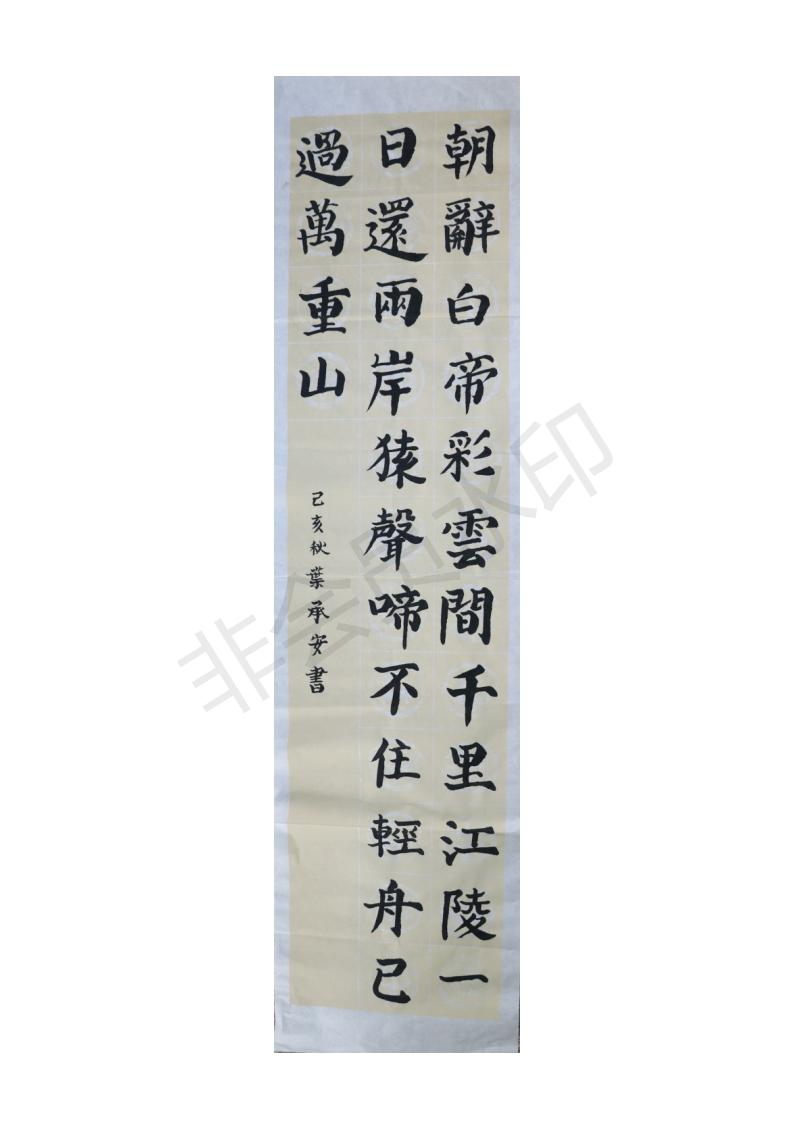 朝辭白帝彩雲間千里江陵一
日還兩岸猿聲啼不住輕舟已
過萬重山
己亥秋葉承安書
非会员水印